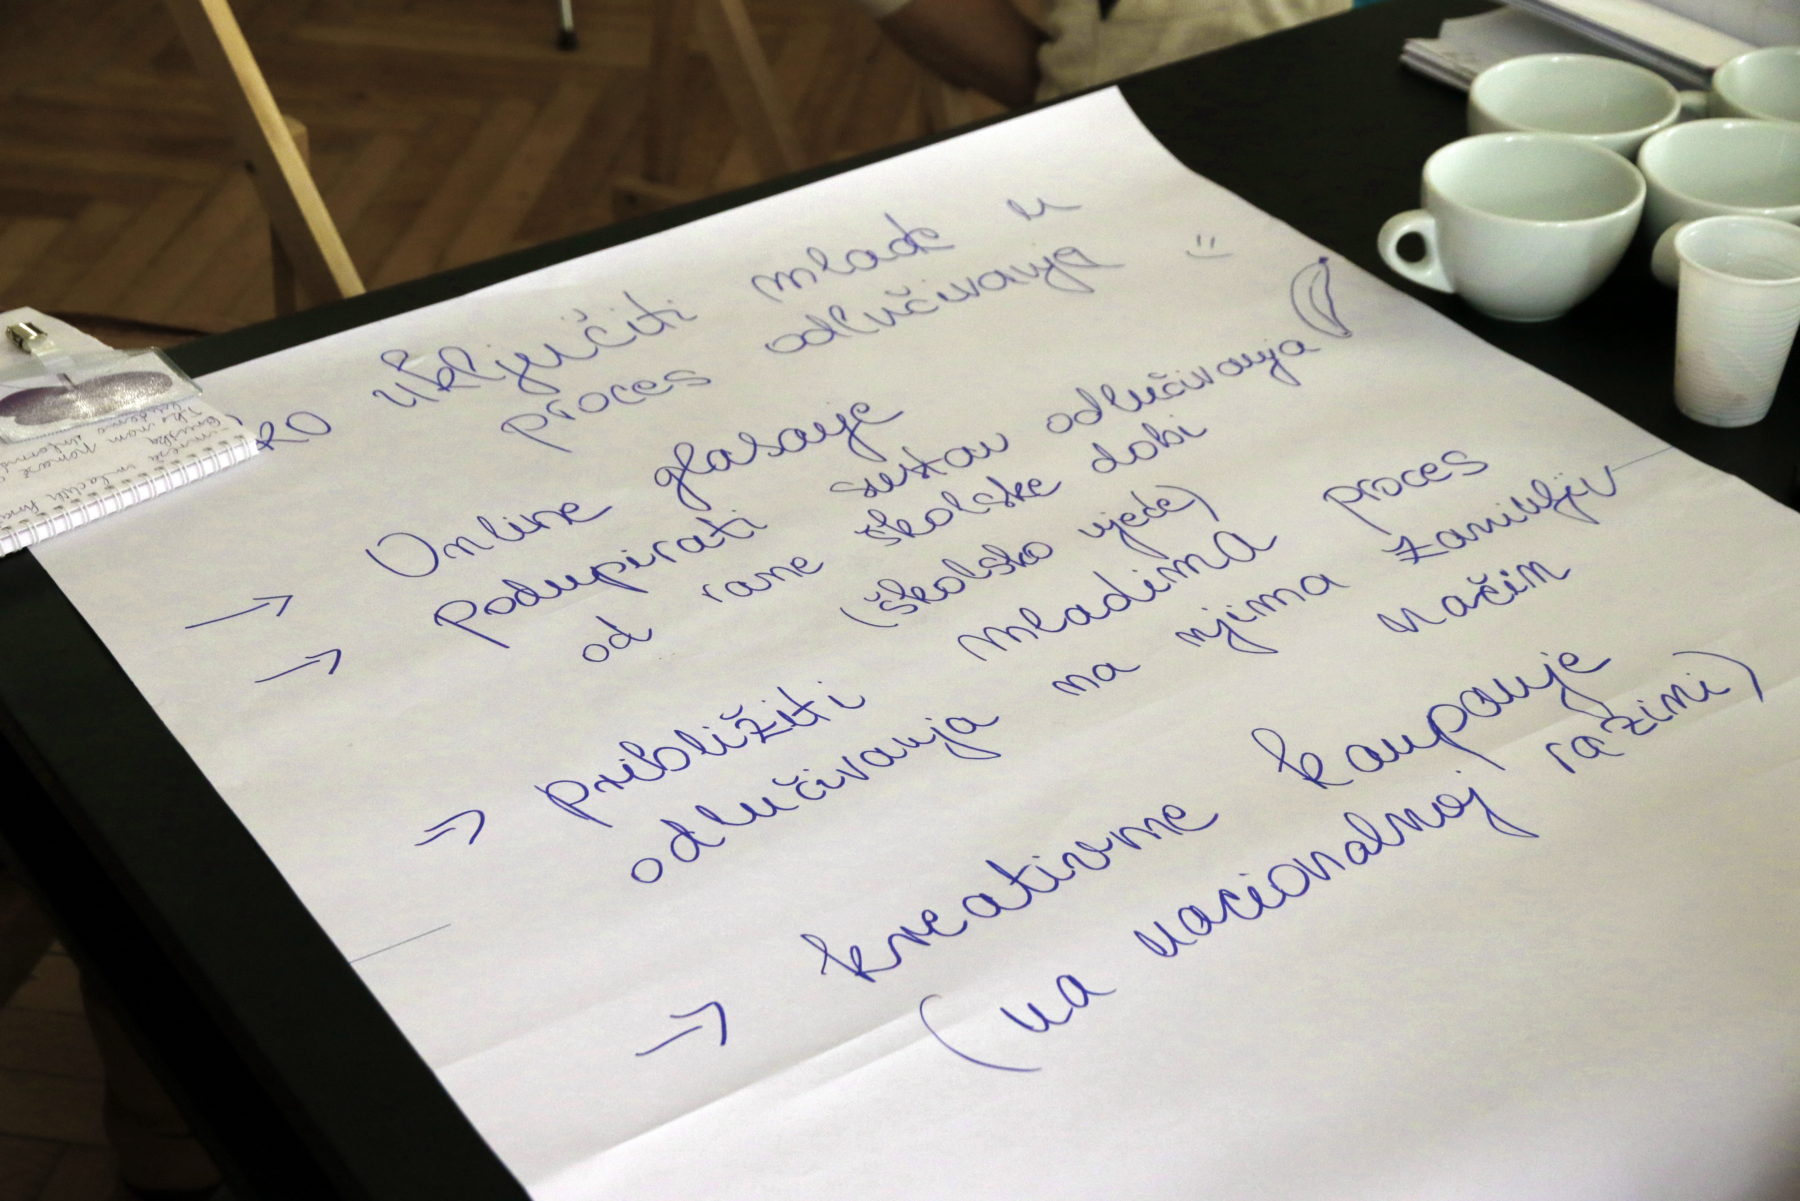 ko uključiti mlade u
proces odlučivanja
→ Online glasanje
→ podupirati sustav odlučivanja
od rane školske dobi
(školsko vijeće)
→ približiti mladima proces
odlučivanja na njima zanimljiv
način
→ kreativne kampanje
(na nacionalnoj razini)